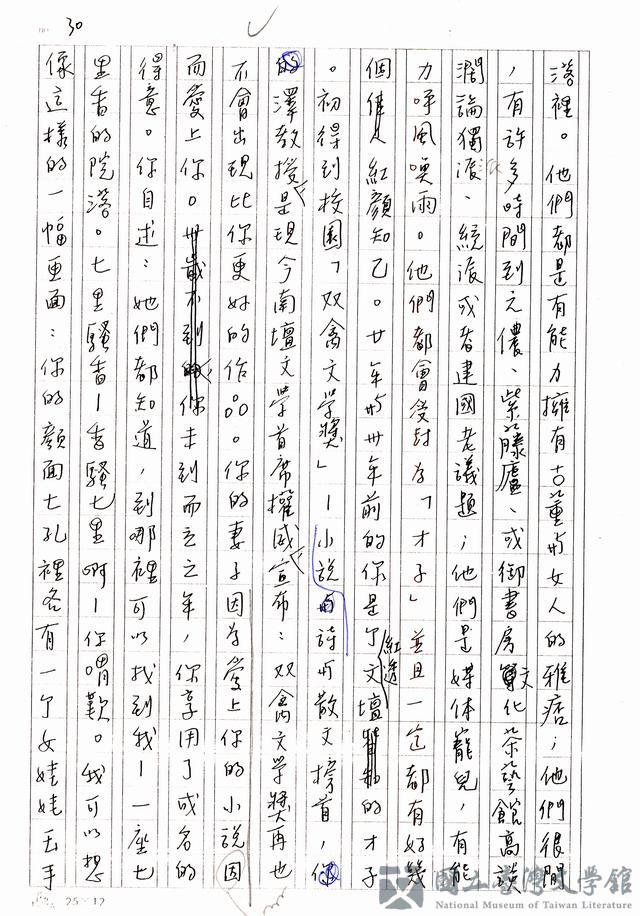 30
落裡。他們都是有能力擁有古董或女人的雅痞；他們很閒
，有許多時間到元儂、紫藤廬、或御書房文化茶藝館高談
濶論獨派、統派或者建國老議題；他們是媒体寵兒，有能
力呼風喚雨。他們都會受封為「才子」並且一定都有好幾
個紅顏知己。廿年或卅年前的你是个紅透文壇的才子
。初得到校園「双禽文学獎」—小說詩或散文榜首，
的澤教授是現今南壇文学首席權威宣布：双禽文学獎再也
不會出現比你更好的作品。你的妻子因為愛上你的小說因
而愛上你。你未到而立之年，你享用了成名的
得意。你自述：她們都知道，到哪裡可以找到我—一座七
里香的院落。七里騷香—香騷七里啊—你喟歎。我可以想
像這樣的一幅画面：你的顏面七孔裡各有一个女娃娃玉手
25×12
國立台灣文學館
National Museum of Taiwan Literature